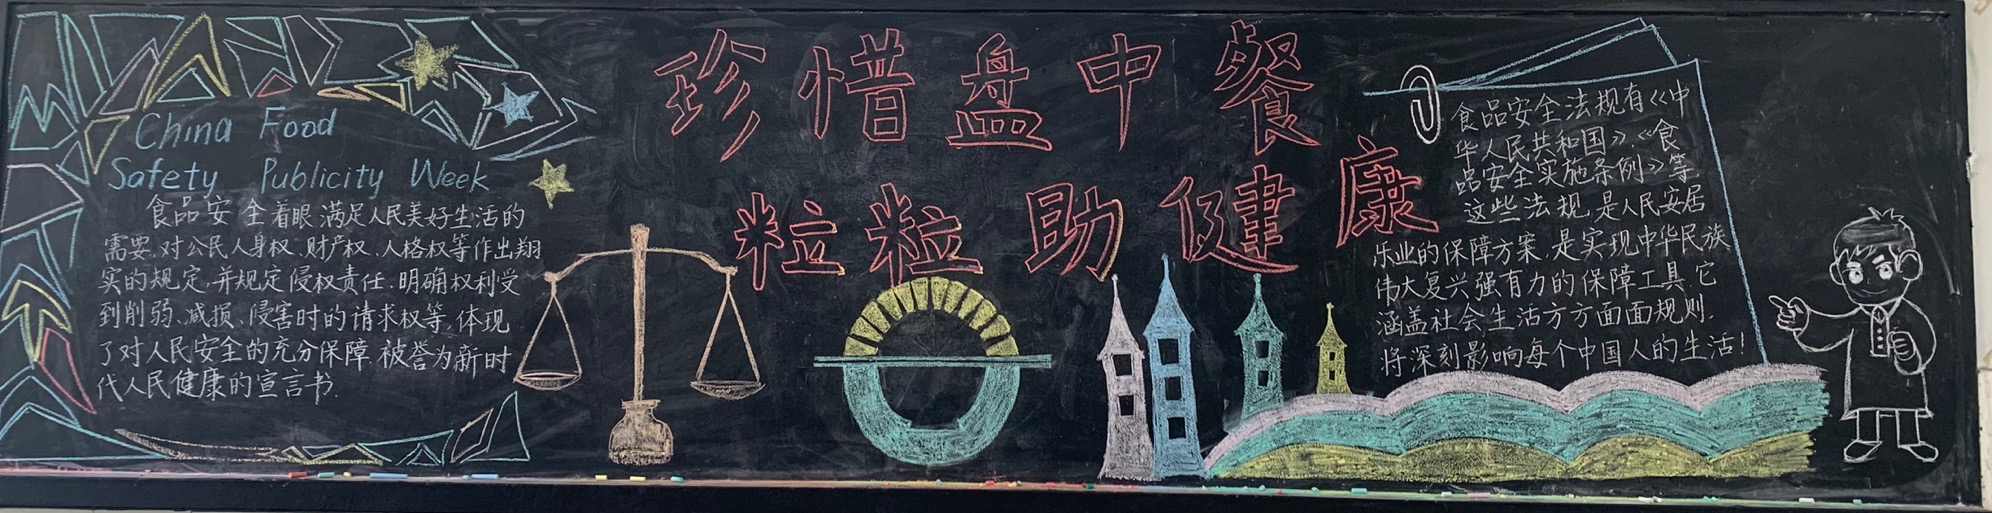 China Food
Safety Publicity Week
食品安全着眼满足人民美好生活的
需要,对公民人身权、财产权、人格权等作出翔
实的规定,并规定侵权责任,明确权利受
到削弱、减损、侵害时的请求权等,体现
了对人民安全的充分保障,被誉为新时
代人民健康的宣言书.
珍惜盘中餐
粒粒助健康
食品安全法规有《中
华人民共和国》、《食
品安全实施条例》等,
这些法规,是人民安居
乐业的保障方案,是实现中华民族
伟大复兴强有力的保障工具.它
涵盖社会生活方方面面规则.
将深刻影响每个中国人的生活!